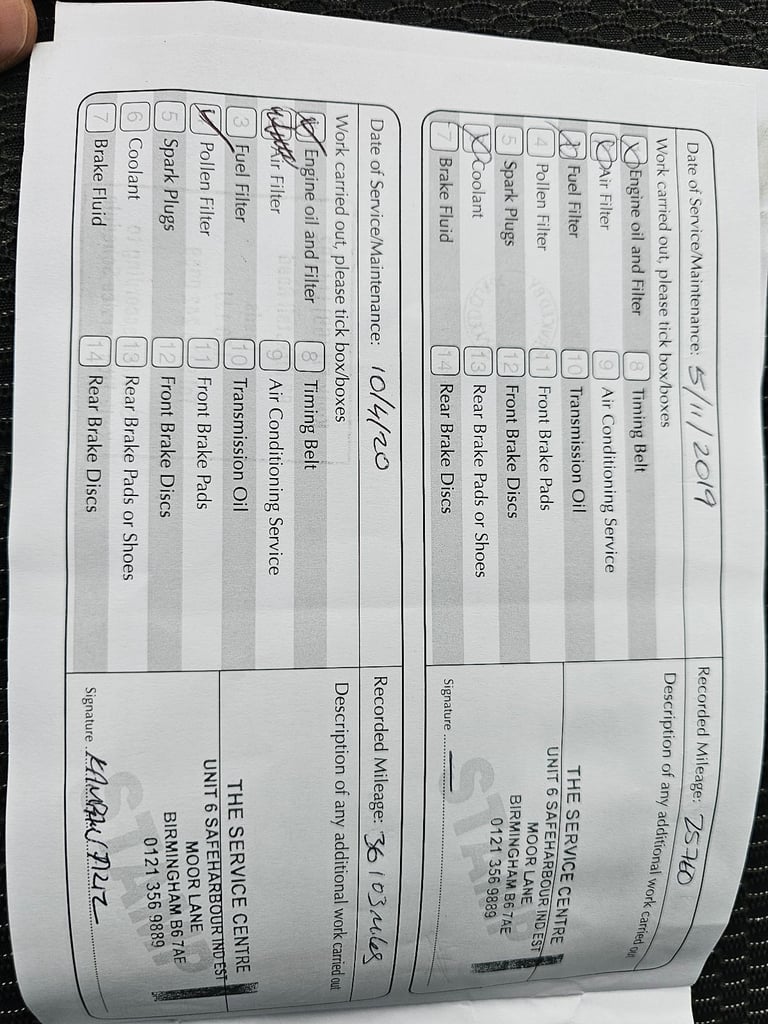 Date of Service/Maintenance: 5/11/2019 Recorded Mileage: 25760
Work carried out, please tick box/boxes Description of any additional work carried out
Engine oil and Filter 8 Timing Belt
Air Filter 9 Air Conditioning Service
Fuel Filter 10 Transmission Oil
4 Pollen Filter 11 Front Brake Pads
5 Spark Plugs 12 Front Brake Discs
Coolant 13 Rear Brake Pads or Shoes
7 Brake Fluid 14 Rear Brake Discs
THE SERVICE CENTRE
UNIT 6 SAFEHARBOUR IND EST
MOOR LANE
BIRMINGHAM B6 7AE
0121 356 9889
STAMP
Signature
Date of Service/Maintenance: 10/4/20 Recorded Mileage: 36103 miles
Work carried out, please tick box/boxes Description of any additional work carried out
Engine oil and Filter 8 Timing Belt
Air Filter 9 Air Conditioning Service
3 Fuel Filter 10 Transmission Oil
Pollen Filter 11 Front Brake Pads
5 Spark Plugs 12 Front Brake Discs
6 Coolant 13 Rear Brake Pads or Shoes
7 Brake Fluid 14 Rear Brake Discs
THE SERVICE CENTRE
UNIT 6 SAFEHARBOUR IND EST
MOOR LANE
BIRMINGHAM B6 7AE
0121 356 9889
STAMP
Signature